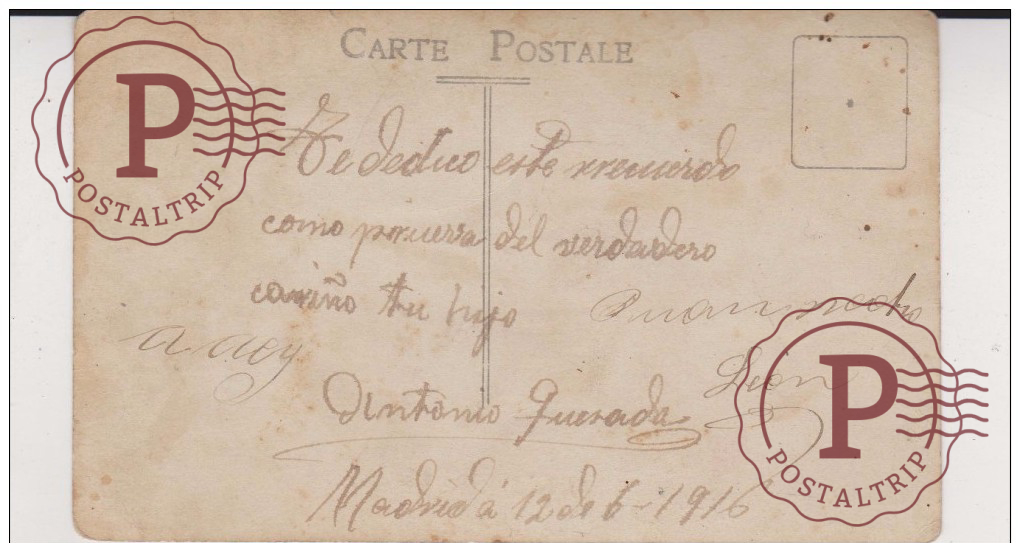 CARTE POSTALE
P
POSTALTRIP
Te dedico este rrecuerdo
como prruerra del verdadero
cariño tu hijo
a
Antonio Quesada
León
Madrid á 12 de 6-1916
P
POSTALTRIP